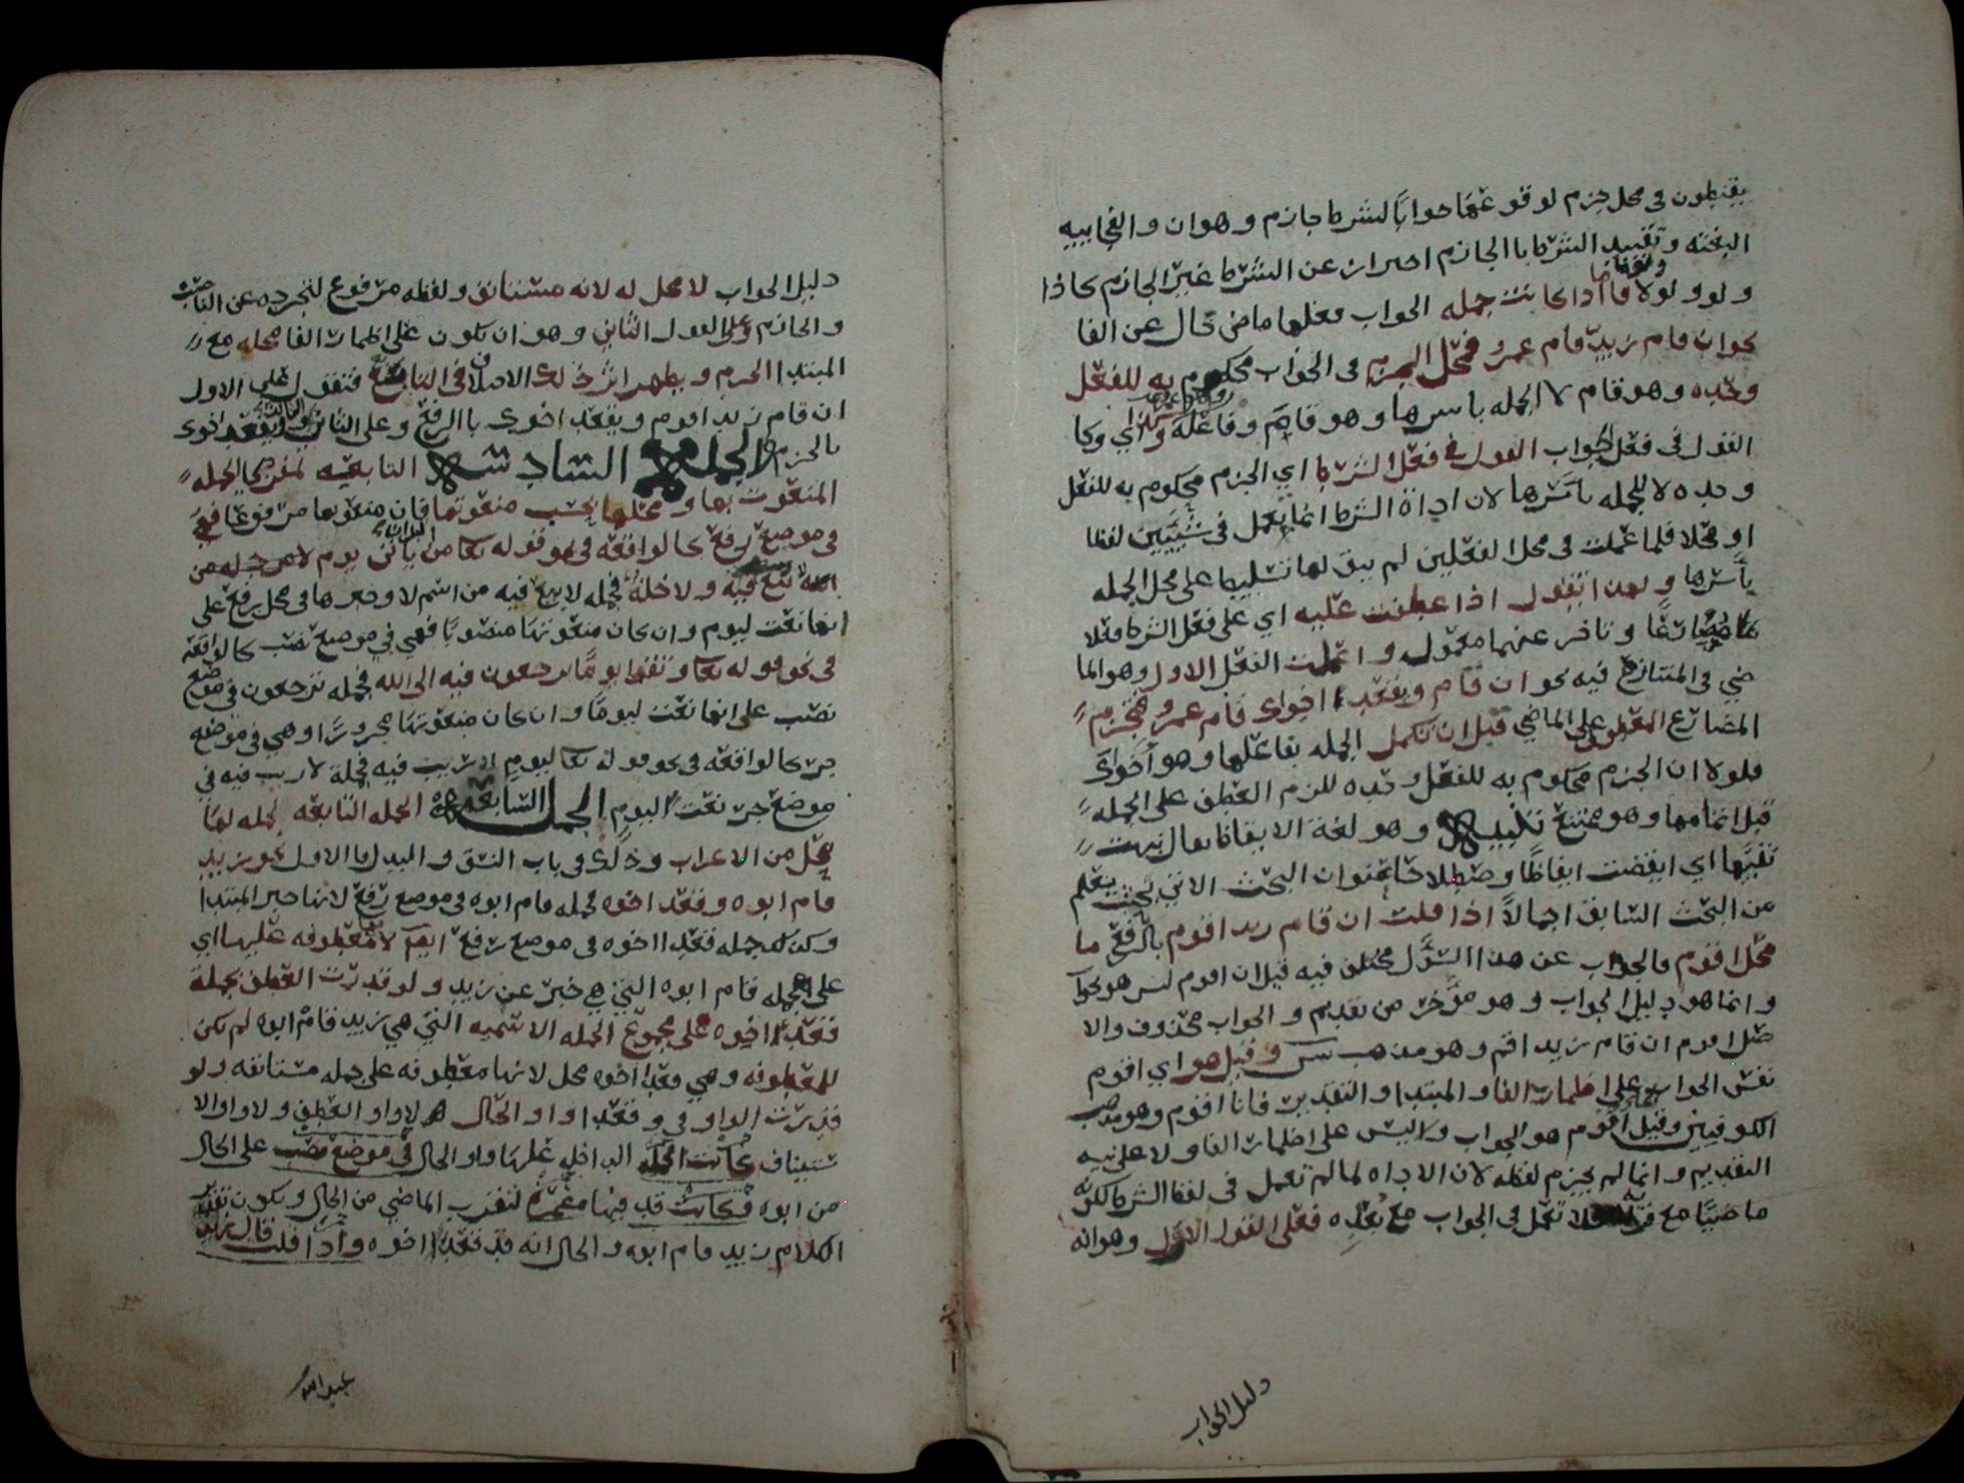 يقنطون في محل جزم لوقوعها جوابا لشرط جازم وهو ان والفجاييه
البغته وتقييد الشرط بالجازم احتراز عن الشرط غير الجازم كاذا
ولو ولولا فاما اذا كانت جمله الجواب فعلها ماض خال عن الفا
نحو ان قام زيد قام عمرو فمحل الجزم في الجواب محكوم به للفعل
وحده وهو قام لا الجمله باسرها وهو قام وفاعله وكذا اي وكا
القول في فعل الجواب القول في فعل الشرط اي الجزم محكوم به للفعل
وحده لا للجمله باسرها لان اداة الشرط انما تعمل في شييين لفظا
او محلا فلما عملت في محل الفعلين لم يبق لها تسليط على محل الجمله
باسرها ولهذا تقول اذا عطفت عليه اي على فعل الشرط فعلا
مضارعا وتاخر عنهما معمول واعملت الفعل الاول وهو الما
ضي في المتنازع فيه نحو ان قام ويقعدا اخواك قام عمرو فتجزم
المضارع المعطوف على الماضي قبل ان تكمل الجمله بفاعلها وهو اخواك
فلولا ان الجزم محكوم به للفعل وحده للزم العطف على الجمله
قبل اتمامها وهو ممتنع تنبيه وهو لغة الايقاظ يقال نبهت
تنبيها اي ايقضت ايقاظا وصطلاحا عنوان البحث الاتي بحيث يعلم
من البحث السابق اجمالا اذا قلت ان قام زيد اقوم بالرفع ما
محل اقوم فالجواب عن هذا السؤل مختلف فيه قيل ان اقوم ليس هو بجواب
وانما هو دليل الجواب وهو مؤخر من تقديم والجواب محذوف والا
صل اقوم ان قام زيد اقم وهو مذهب س وقيل هو اي اقوم
نفس الجواب على اظمار الفا والمبتدا والتقدير فانا اقوم وهو مذهب
الكوفيين وقيل اقوم هو الجواب وليس على اظمار الفا ولا على نيه
التقديم وانما لم يجزم لفظه لان الاداه لما لم تعمل في لفظ الشرط لكونه
ماضيا مع قربه فلا تعمل في الجواب مع بعده فعلى القول الاول وهو انه
دليل الجواب
دليل الجواب لا محل له لانه مستانف ولفظه مرفوع لتجرده عن الناصب
والجازم وعلى القول الثاني وهو ان يكون على اظمار الفا محله مع
المبتدا الجزم ويظهر اثر ذلك الاختلاف في التابع فتقول على الاول
ان قام زيد اقوم ويقعد اخوك بالرفع وعلى الثاني ويقعد اخوك
بالجزم الجملة السادسة التابعه لمفرد كالجمله
المنعوت بها ومحلها بحسب منعوتها فان منعوتها مرفوعا فهي
في موضع رفع كالواقعه في نحو قوله تعا من قبل ان ياتي يوم لا
بيع فيه ولا خلة فجمله لا بيع فيه من اسم لا وخبرها في محل رفع على
انها نعت ليوم وان كان منعوتها منصوبا فهي في موضع نصب كالواقعه
في نحو قوله تعا واتقوا يوما ترجعون فيه الى الله فجمله ترجعون في موضع
نصب على انها نعت ليوما وان كان منعوتها مجرورا وهي في موضع
جر كالواقعه في نحو قوله تعا ليوم لا ريب فيه فجملة لا ريب فيه في
موضع جر نعت اليوم الجملة السابعه الجمله التابعه لجمله لها
محل من الاعراب وذلك في باب النسق والبدل فالاول نحو زيد
قام ابوه وقعد اخوه فجمله قام ابوه في موضع رفع لانها خبر المبتدا
وكذلك جمله قعد اخوه في موضع رفع ايضا لانها معطوفه عليها اي
على جمله قام ابوه التي هي خبر عن زيد ولو قدرت العطف لجملة
قعد اخوه على مجموع الجمله الاسميه التي هي زيد قام ابوه لم يكن
للمعطوفه وهي وقعد اخوه محل لانها معطوفه على جمله مستانفه ولو
قدرت الواو في وقعد واو الحال لا واو العطف ولا واو الا
ستيناف كانت الجمله الداخلة عليها واو الحال في موضع نصب على الحال
من ابوه وكانت قد فيها مضمرة لتقرب الماضي من الحال ويكون تقدير
الكلام زيد قام ابوه والحال انه قد قعد اخوه واذا قلت قال زيد
عبد الله